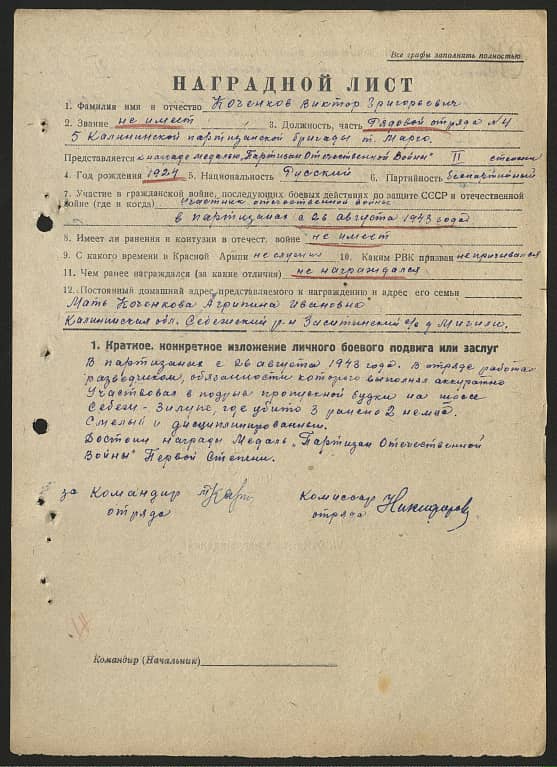 Все графы заполнять полностью
НАГРАДНОЙ ЛИСТ
1. Фамилия имя и отчество Коченков Виктор Григорьевич
2. Звание не имеет 3. Должность, часть Рядовой отряда №4
5 Калининской партизанской бригады т. Марго.
Представляется к награде медалью „Партизан Отечественной Войны" II степени
4. Год рождения 1924 5. Национальность Русский 6. Партийность Беспартийный
7. Участие в гражданской войне, последующих боевых действиях по защите СССР и отечественной
войне (где и когда) Участник отечественной войны
в партизанах с 26 августа 1943 года
8. Имеет ли ранения и контузии в отечест. войне не имеет
9. С какого времени в Красной Армии не служил 10. Каким РВК призван не призывался
11. Чем ранее награждался (за какие отличия) не награждался
12. Постоянный домашний адрес представляемого к награждению и адрес его семьи
Мать Коченкова Агрипина Ивановна
Калининская обл. Себежский р-н Заситинский с/с д.
1. Краткое, конкретное изложение личного боевого подвига или заслуг
В партизанах с 26 августа 1943 года. В отряде работал
разведчиком, обязанности которого выполнял аккуратно
Участвовал в пропускной будки на шоссе
Себеж-Зилупе, где убито 3 ранено 2 немца.
Смелый и дисциплинированый.
Достоин награды Медаль „Партизан Отечественной
Войны" Первой Степени.
за Командир Комиссар
отряда отряда
Командир (Начальник)